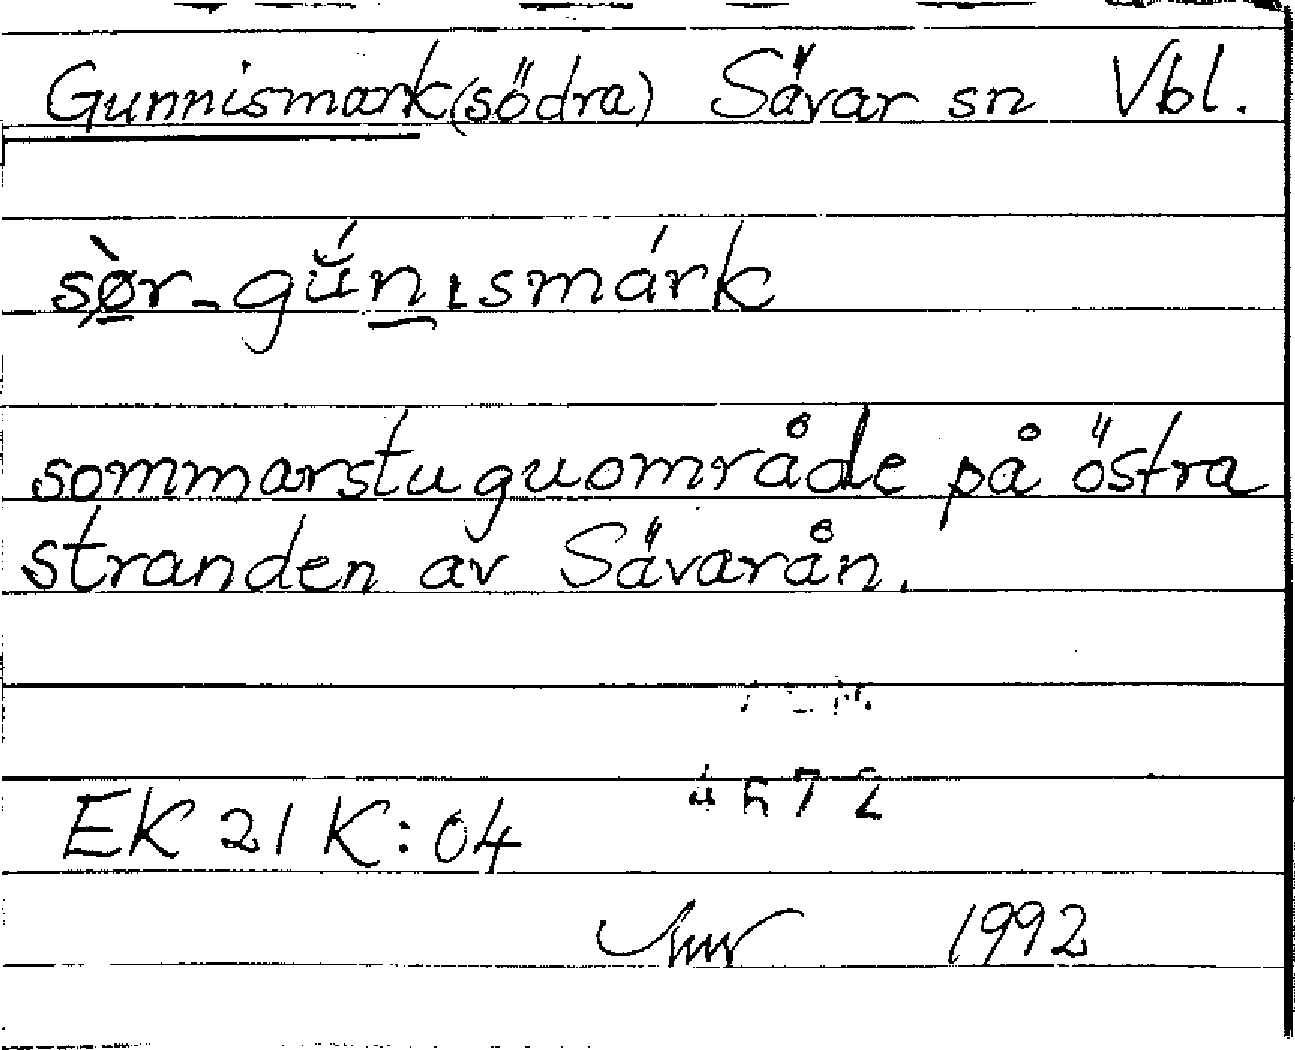 Gunnismark (södra) Sävar sn Vbl.
sø̀r-gŭ́nısmárk
sommarstuguområde på östra
stranden av Sävarån.
EK 21 K:04
1992